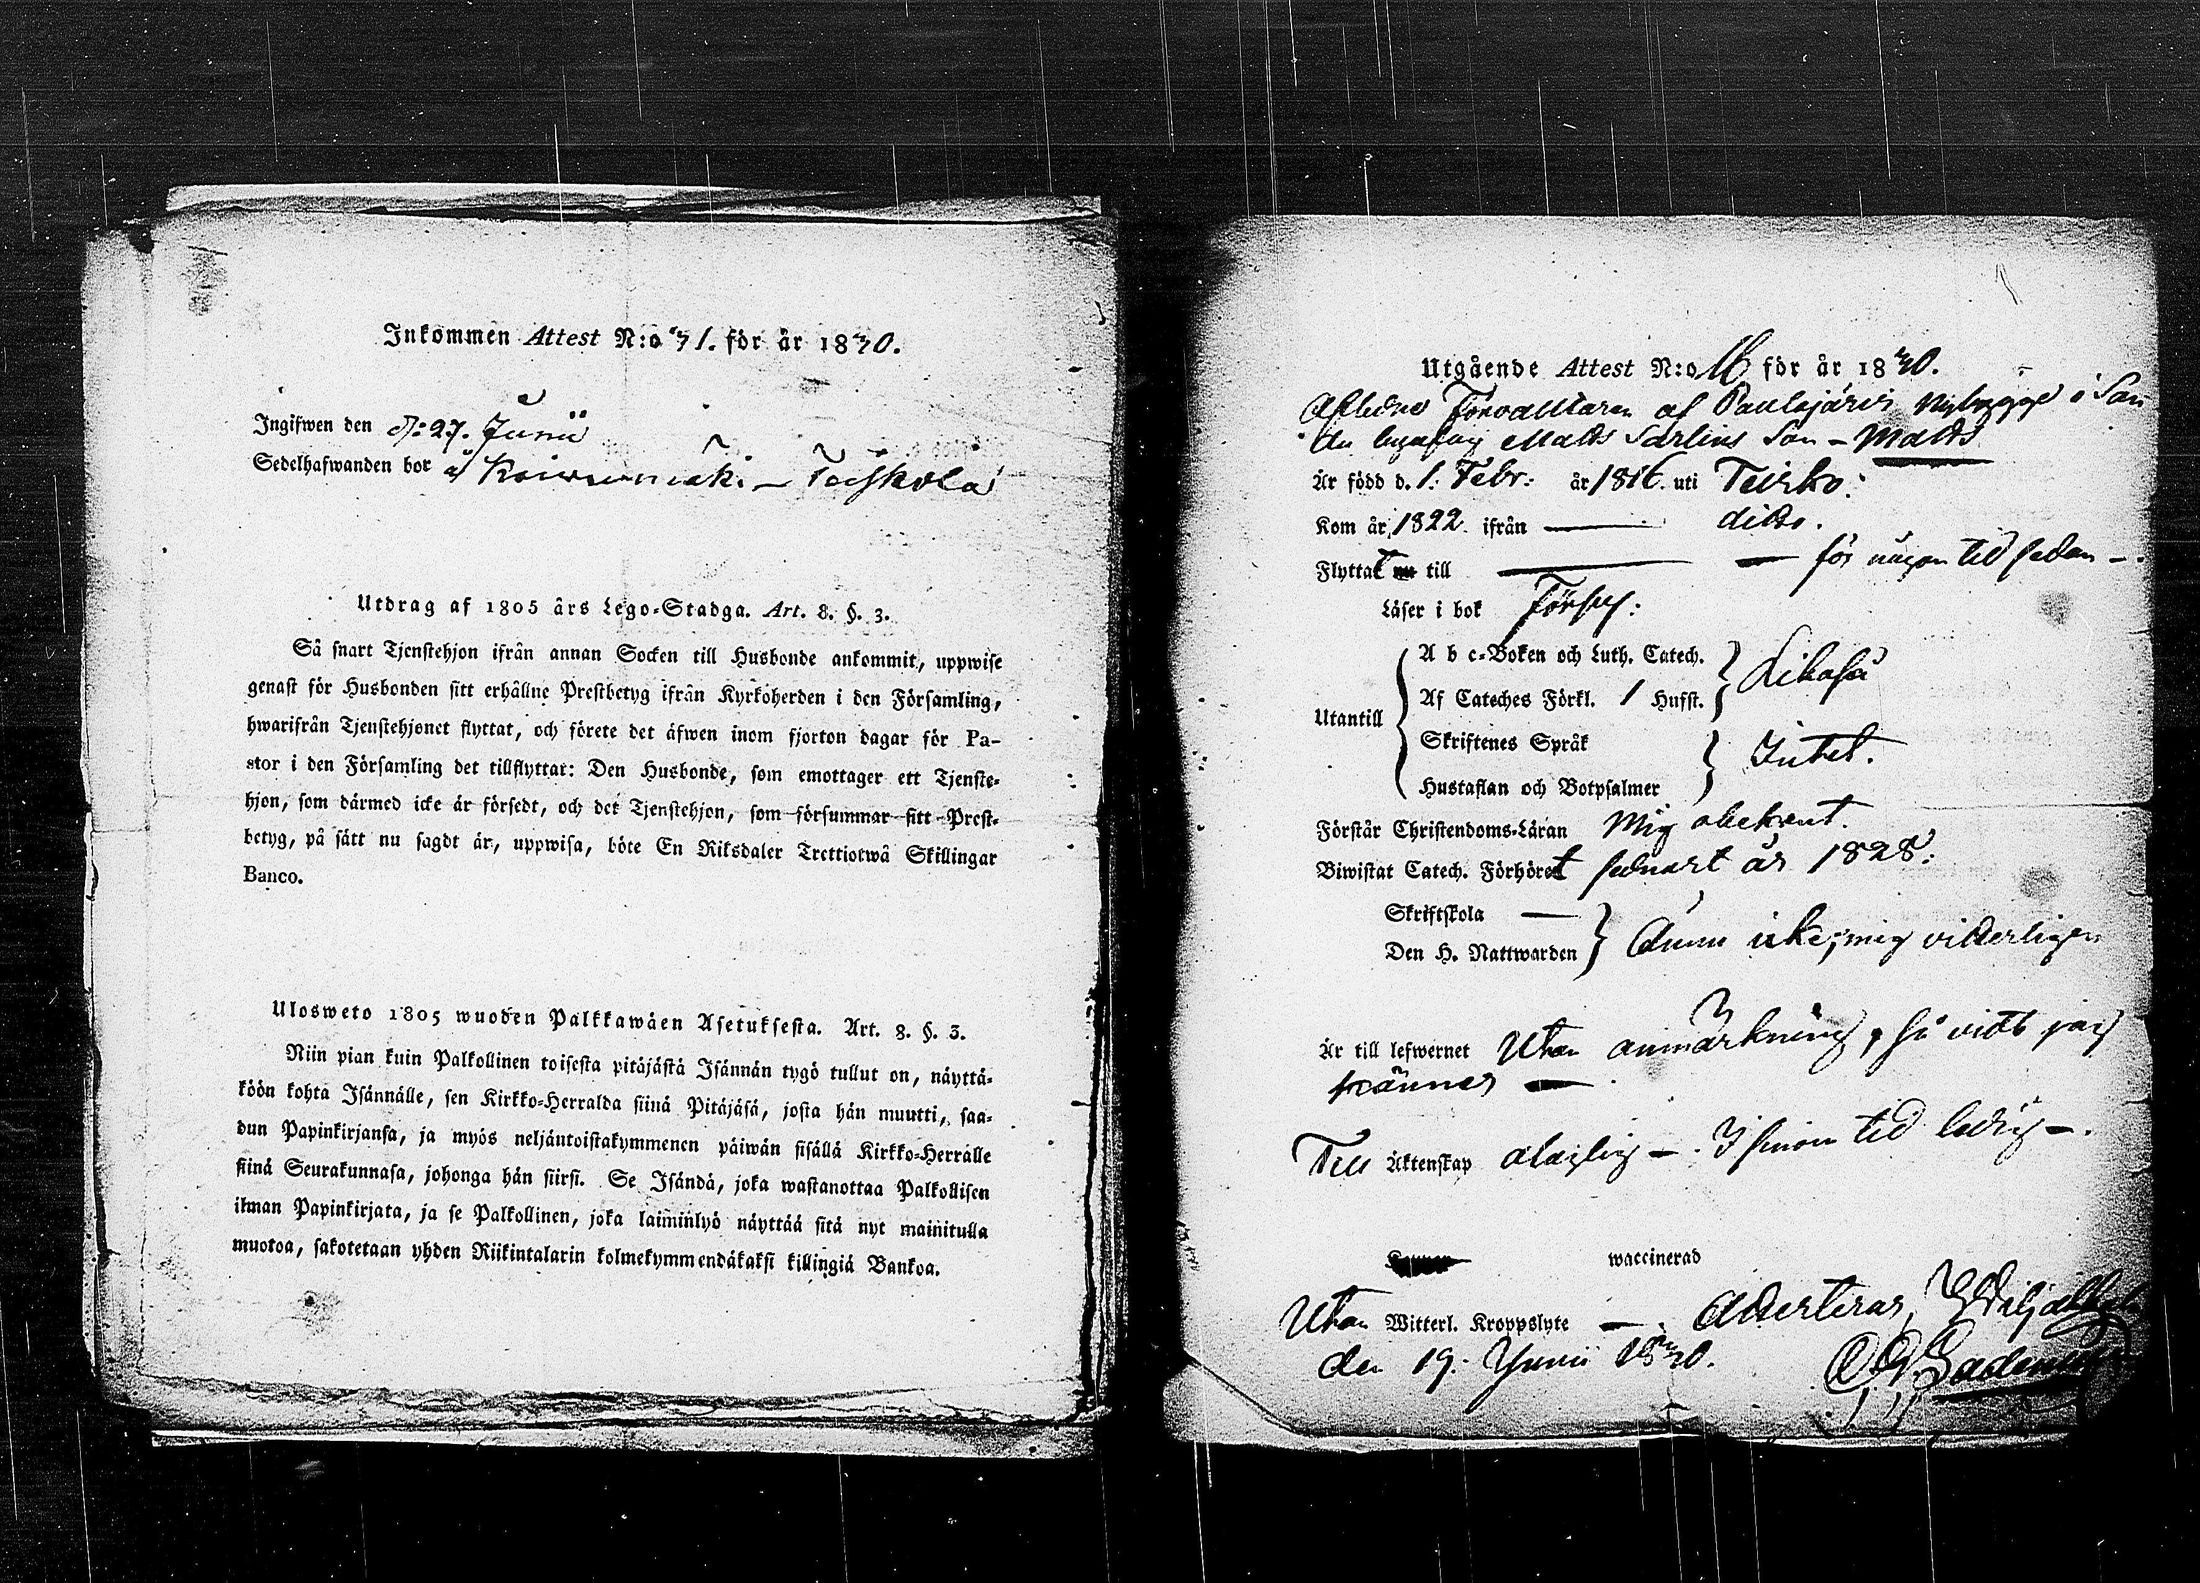 Inkommen Attest N:o 31. för år 1830.
Ingifwen den d: 27. Junii
Sedelhafwanden bor å Koivumäki – Teiskola
Utdrag af 1805 års Lego-Stadga. Art. 8. §. 3.
Så snart Tjenstehjon ifrån annan Socken till Husbonde ankommit, uppwise
genast för Husbonden sitt erhållne Prestbetyg ifrån Kyrkoherden i den Församling,
hwarifrån Tjenstehjonet flyttat, och förete det äfwen inom fjorton dagar för Pa-
stor i den Församling det tillflyttat: Den Husbonde, som emottager ett Tjenste-
hjon, som därmed icke är försedt, och det Tjenstehjon, som försummar sitt Prest-
betyg, på sätt nu sagdt är, uppwisa, böte En Riksdaler Trettiotwå Skillingar
Banco.
Ulosweto 1805 wuoden Palkkawäen Asetuksesta. Art. 8. §. 3.
Niin pian kuin Palkollinen toisesta pitäjästä Isännän tygö tullut on, näyttä-
köön kohta Isännälle, sen Kirkko-Herralda siinä Pitäjäsä, josta hän muutti, saa-
dun Papinkirjansa, ja myös neljäntoistakymmenen päiwän sisällä Kirkko-Herrälle
siinä Seurakunnasa, johonga hän siirsi. Se Isändä, joka wastanottaa Palkollisen
ilman Papinkirjata, ja se Palkollinen, joka laiminlyö näyttää sitä nyt mainitulla
muotoa, sakotetaan yhden Riikintalarin kolmekymmendäkaksi killingiä Bankoa.
Utgående Attest N:o 16 för år 1830.
Aflidne Förvaltaren af Paulajärvi Nybygge i San
Matts Sarlins Son – Matts
Är född d. 1. Febr: år 1816. uti Teisko:
Kom år 1822. ifrån — ditto.
Flyttat till — för någon tid sedan –.
Läser i bok Försvl:
A b c-Boken och Luth. Catech.
Af Cateches Förkl. 1 Hufst. Likaså
Utantill
Skriftenes Språk
Hustaflan och Botpsalmer Intet.
Förstår Christendoms-Läran Mig obekant.
Biwistat Catech. Förhöret sednast år 1828:
Skriftskola —
Den H. Nattwarden ännu icke, mig vitterligen
Är till lefwernet Utan anmärkning, så vidt jag
känner —.
Till Äktenskap –. I sinom tid ledig –.
waccinerad
Utan Witterl. Kroppslyte —. Attesteras,
den 19. Junii 1830.